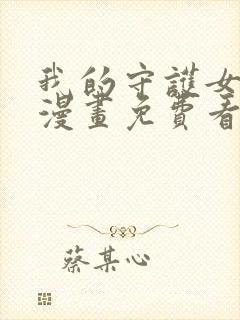 我的守護女
漫畫免費看
蔡某心